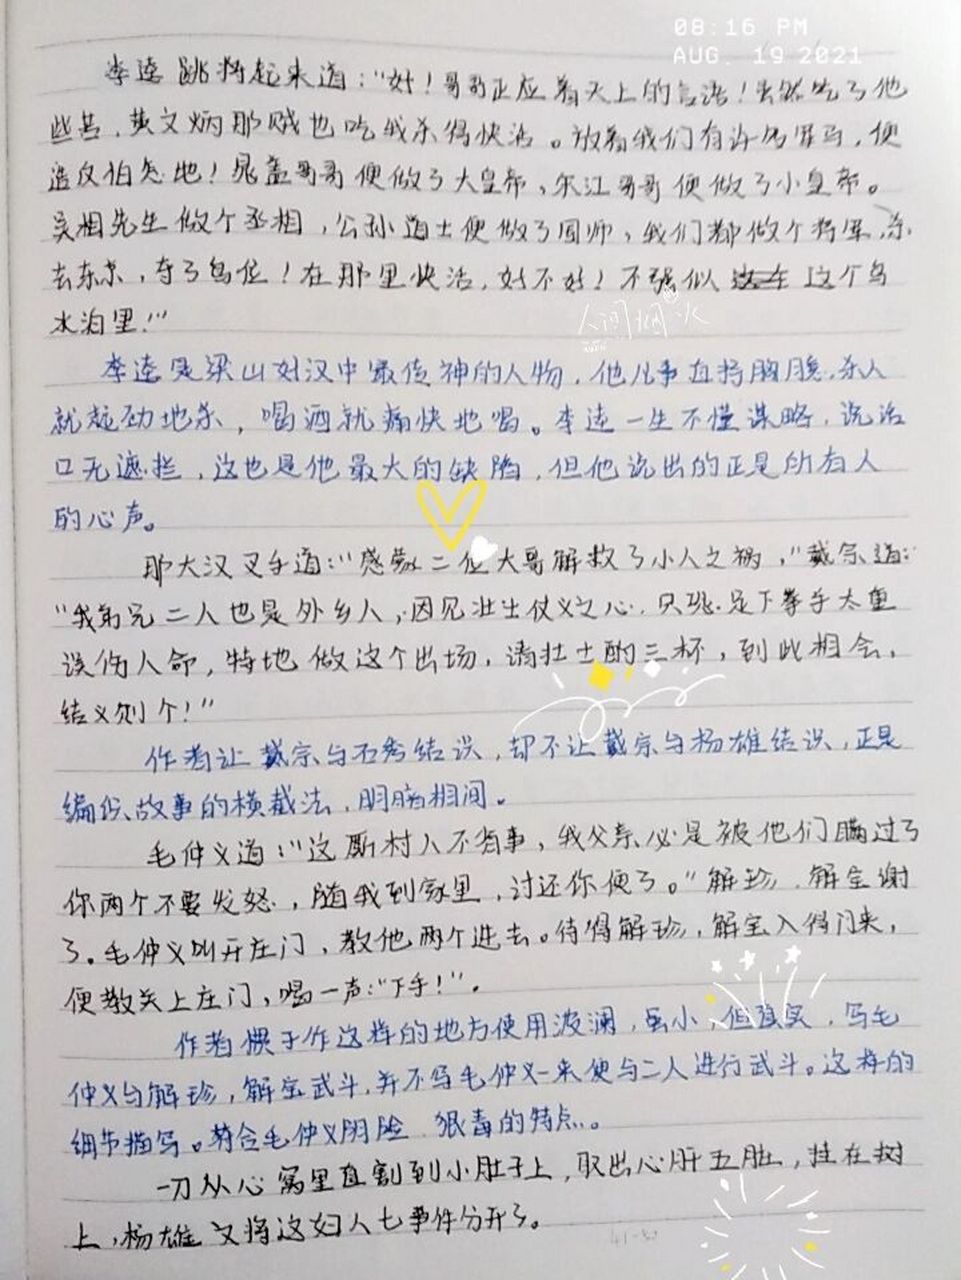 08:16 PM
AUG. 19 2021
李逵跳将起来道:“好!哥哥正应着天上的言语!虽然吃了他
些苦,黄文炳那贼也吃我杀得快活。放着我们有许多军马,便
造反怕怎地!晁盖哥哥便做了大皇帝、宋江哥哥便做了小皇帝。
吴相先生做个丞相,公孙道士便做了国师,我们都做个将军,杀
去东京,夺了鸟位!在那里快活,好不好!不强似这个鸟
水泊里!”
人间烟火
李逵是梁山好汉中最传神的人物,他凡事直抒胸臆,杀人
就起劲地杀,喝酒就痛快地喝。李逵一生不懂谋略,说话
口无遮拦,这也是他最大的缺陷,但他说出的正是所有人
的心声。
那大汉叉手道:“感蒙二位大哥解救了小人之祸,”戴宗道:
“我弟兄二人也是外乡人,因见壮士仗义之心,只恐足下拳手太重
误伤人命,特地做这个出场,请壮士酌三杯,到此相会,
结义则个!”
作者让戴宗与石秀结识,却不让戴宗与杨雄结识,正是
编织故事的横截法,明暗相间。
毛仲义道:“这厮村人不省事,我父亲必是被他们瞒过了
你两个不要发怒,随我到家里,讨还你便了。”解珍、解宝谢
了。毛仲义叫开庄门,教他两个进去。待得解珍,解宝入得门来,
便教关上庄门,喝一声:“下手!”。
作者惯于作这样的地方使用波澜,虽小,但强实,写毛
仲义与解珍,解宝武斗,并不写毛仲义一来便与二人进行武斗。这样的
细节描写。符合毛仲义阴险、狠毒的特点。
一刀从心窝里直割到小肚子上,取出心肝五脏,挂在树
上,杨雄又将这妇人七事件分开了。